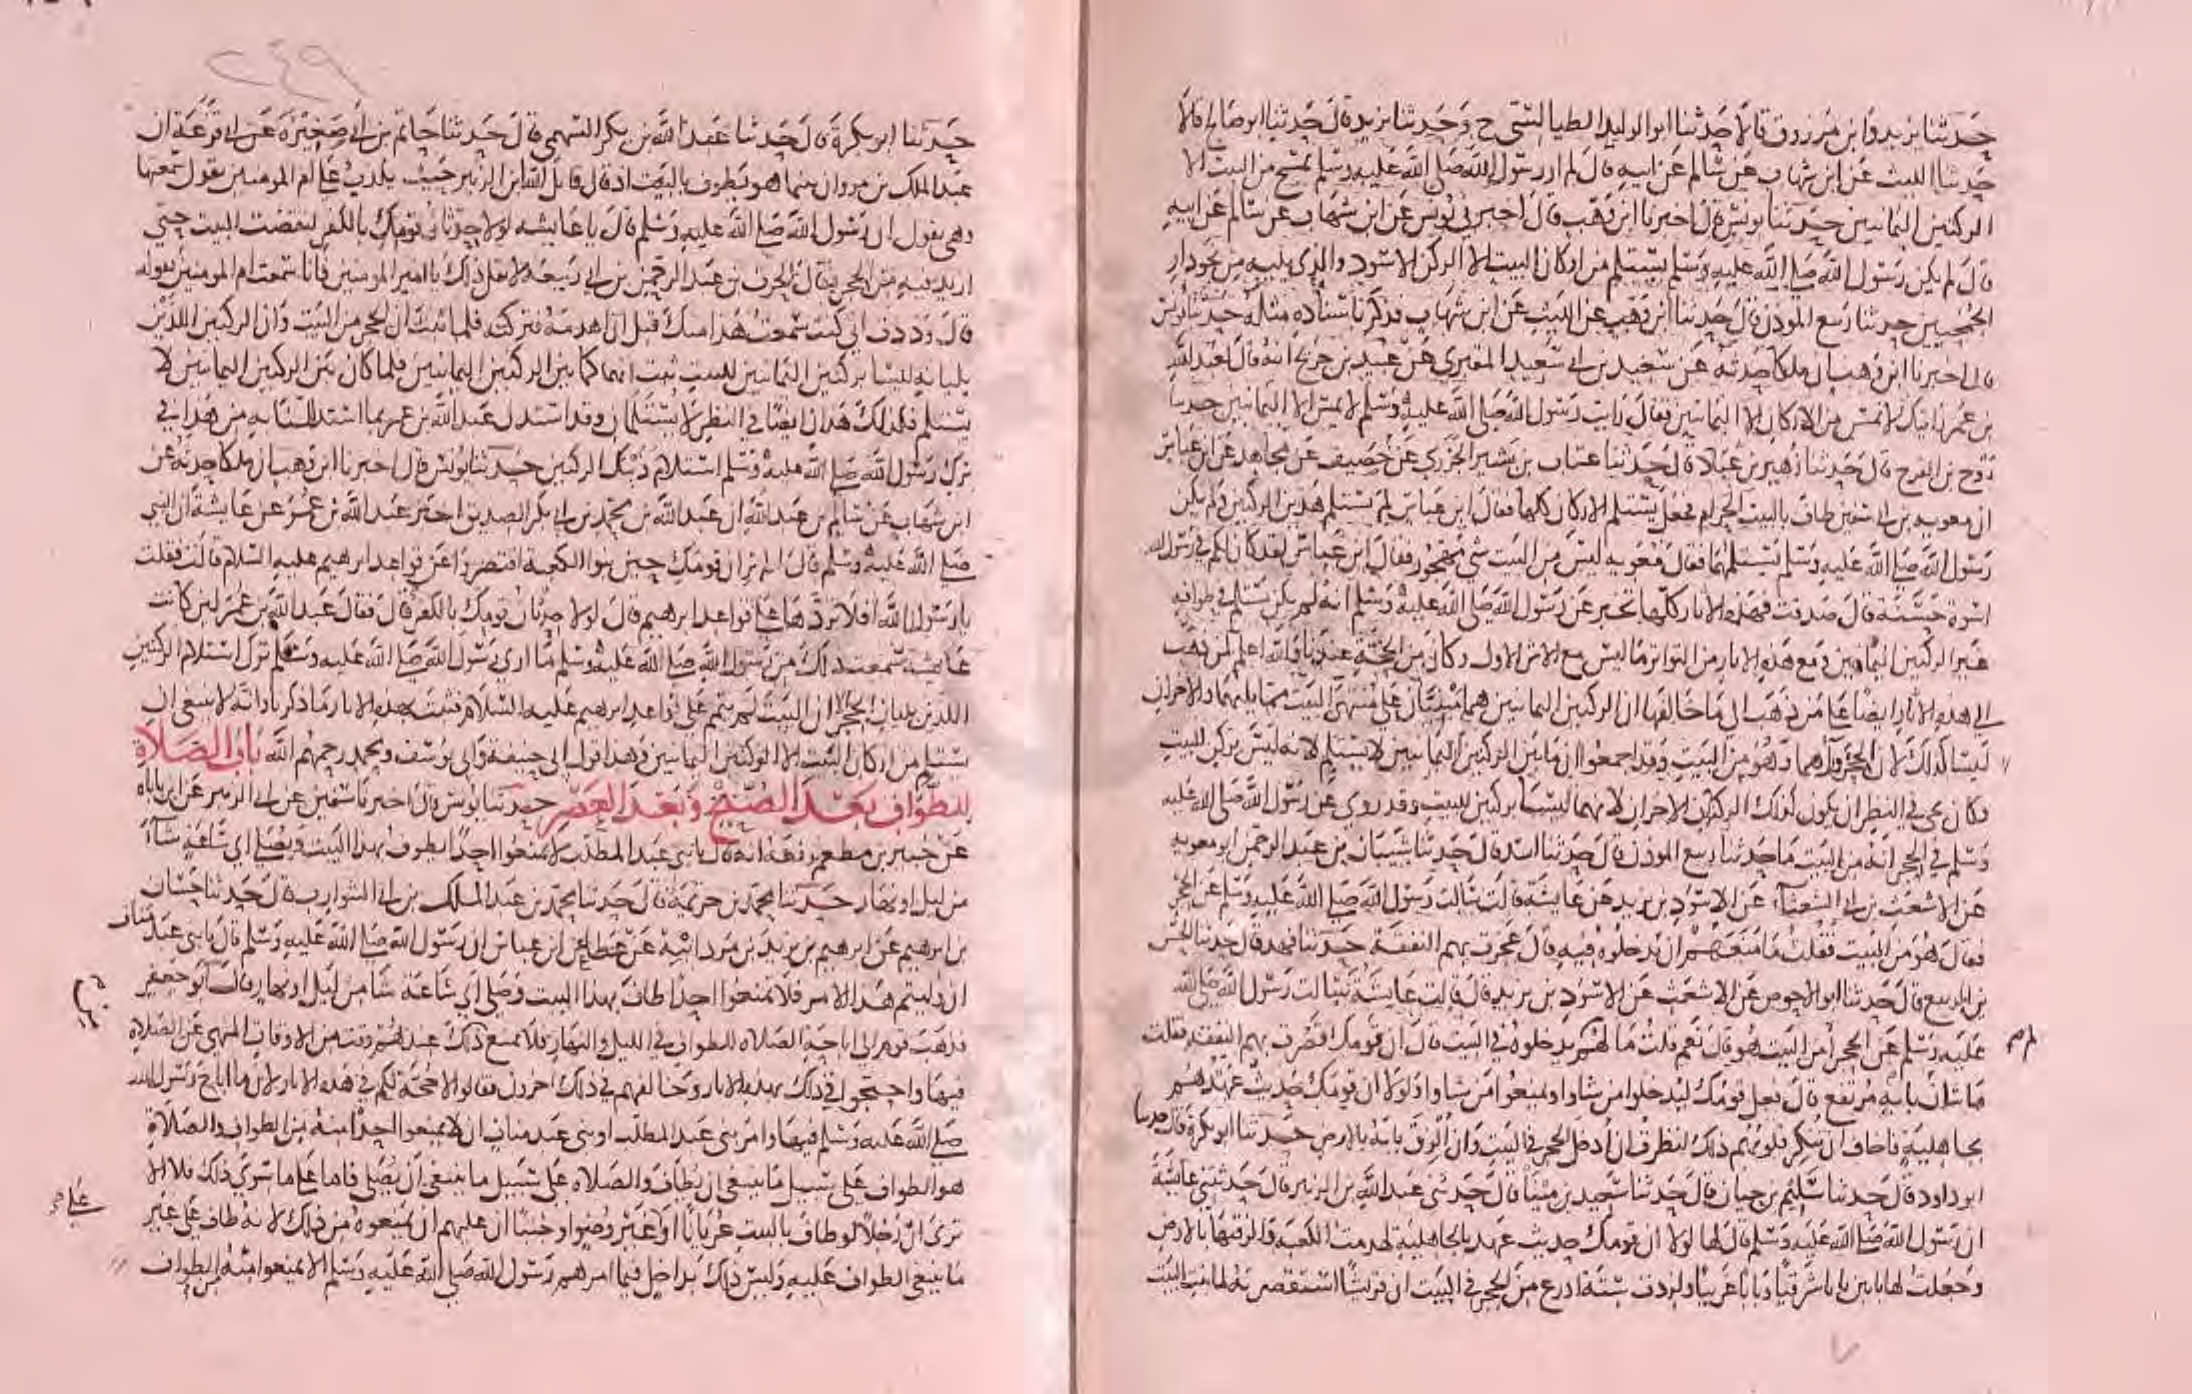 حدثنا يزيد وابن مرزوق قالا حدثنا ابو الوليد الطيالسي ح وحدثنا يزيد قال حدثنا ابو صالح قالا
حدثنا الليث عن ابن شهاب عن سالم عن ابيه قال لم ار رسول الله صلى الله عليه وسلم يمسح من البيت الا
الركنين اليمانيين حدثنا يونس قال اخبرنا ابن وهب قال اخبرني يونس عن ابن شهاب عن سالم عن ابيه
قال لم يكن رسول الله صلى الله عليه وسلم يستلم من اركان البيت الا الركن الاسود والذي يليه من نحو دار
الجمحيين حدثنا ربيع الموذن قال حدثنا ابن وهب عن الليث عن ابن شهاب فذكر باسناده مثله حدثنا يونس
قال اخبرنا ابن وهب ان ملكا حدثه عن سعيد بن ابي سعيد المقبري عن عبيد بن جريج انه قال لعبد الله
بن عمر رايتك لا تمس من الاركان الا اليمانيين فقال رايت رسول الله صلى الله عليه وسلم لا يمس الا اليمانيين حدثنا
روح بن الفرج قال حدثنا زهير بن عباد قال حدثنا عتاب بن بشير الجزري عن خصيف عن مجاهد عن ابن عباس
ان معويه بن ابي سفين طاف بالبيت الحرام فجعل يستلم الاركان كلها فقال ابن عباس لم تستلم هذين الركنين ولم يكن
رسول الله صلى الله عليه وسلم يستلمهما فقال معويه ليس من البيت شي مهجور فقال ابن عباس لقد كان لكم في رسول الله
اسوة حسنة قال صدقت فهذه الاثار كلها تخبر عن رسول الله صلى الله عليه وسلم انه لم يكن يستلم في طوافه
غير الركنين اليمانيين ومع هذه الاثار من التواتر ما ليس مع الاثر الاول وكان من الحجة عندنا والله اعلم لمن ذهب
الى هذه الاثار ايضا على من ذهب الى ما خالفها ان الركنين اليمانيين هما مبنيان على منتهى البيت مما يليهما والاخران
ليسا كذلك لان الحجر وراهما وهو من البيت وقد اجمعوا ان ما بين الركنين اليمانيين لا يستلم لانه ليس بركن للبيت
فكان يجي في النظر ان يكون كذلك الركنان الاخران لانهما ليسا بركنين للبيت وقد روي عن رسول الله صلى الله عليه
وسلم في الحجر انه من البيت ما حدثنا ربيع الموذن قال حدثنا اسد قال حدثنا شيبان بن عبد الرحمن ابو معويه
عن الاشعث بن ابي الشعثاء عن الاسود بن يزيد عن عايشة قالت سالت رسول الله صلى الله عليه وسلم عن الحجر
فقال هو من البيت فقلت ما منعهم ان يدخلوه فيه قال عجزت بهم النفقة حدثنا فهد قال حدثنا الحسن
بن الربيع قال حدثنا ابو الاحوص عن الاشعث عن الاسود بن يزيد قال قالت عايشة سالت رسول الله صلى الله
عليه وسلم عن الحجر امن البيت هو قال نعم قلت ما لهم لم يدخلوه في البيت قال ان قومك قصرت بهم النفقه فقلت
ما شان بابه مرتفع قال فعل قومك ليدخلوا من شاوا ويمنعوا من شاوا ولولا ان قومك حديث عهدهم
بجاهلية فاخاف ان تنكر قلوبهم ذلك لنظرت ان ادخل الحجر في البيت وان الزق بابه بالارض حدثنا ابو بكرة قال حدثنا
ابو داود قال حدثنا سليم بن حيان قال حدثنا سعيد بن مينا قال حدثني عبد الله بن الزبير قال حدثتني عايشة
ان رسول الله صلى الله عليه وسلم قال لها لولا ان قومك حديث عهد بالجاهلية لهدمت الكعبة والزقتها بالارض
وجعلت لها بابين بابا شرقيا وبابا غربيا ولزدت ستة اذرع من الحجر في البيت ان قريشا استقصرته لما بنت البيت
٢٤٩
حدثنا ابو بكرة قال حدثنا عبد الله بن بكر السهمي قال حدثنا حاتم بن ابي صغيرة عن ابي قزعة ان
عبد الملك بن مروان بينما هو يطوف بالبيت اذ قال قاتل الله ابن الزبير حيث يكذب على ام المومنين يقول سمعتها
وهي تقول ان رسول الله صلى الله عليه وسلم قال يا عايشه لولا حدثان قومك بالكفر لنقضت البيت حتى
ازيد فيه من الحجر فقال الحرث بن عبد الرحمن بن ابي ربيعة لا تقل ذلك يا امير المومنين فانا سمعت ام المومنين تقوله
قال وددت اني كنت سمعت هذا منك قبل ان اهدمه فتركته فلما ثبت ان الحجر من البيت وان الركنين اللذين
يليانه ليسا بركنين اليمانيين للبيت ثبت انهما كما بين الركنين اليمانيين فلما كان بين الركنين اليمانيين لا
يستلم فكذلك هذان ايضا في النظر لا يستلمان وقد استدل عبد الله بن عمر بما استدللنا به من هذا في
ترك رسول الله صلى الله عليه وسلم استلام ذينك الركنين حدثنا يونس قال اخبرنا ابن وهب ان ملكا حدثه عن
ابن شهاب عن سالم بن عبد الله ان عبد الله بن محمد بن ابي بكر الصديق اخبر عبد الله بن عمر عن عايشة ان النبي
صلى الله عليه وسلم قال الم تر ان قومك حين بنوا الكعبة اقتصروا عن قواعد ابرهيم عليه السلام قالت فقلت
يا رسول الله افلا تردها على قواعد ابرهيم قال لولا حدثان قومك بالكفر قال فقال عبد الله بن عمر لين كانت
عايشة سمعت ذلك من رسول الله صلى الله عليه وسلم ما ارى رسول الله صلى الله عليه وسلم ترك استلام الركنين
اللذين يليان الحجر الا ان البيت لم يتم على قواعد ابرهيم عليه السلام فثبت بهذه الاثار ما ذكرنا وانه لا ينبغي ان
يستلم من اركان البيت الا الركنين اليمانيين وهذا قول ابي حنيفة وابي يوسف ومحمد رحمهم الله باب الصلاة
للطواف بعد الصبح وبعد العصر حدثنا يونس قال اخبرنا سفين عن ابي الزبير عن ابن باباه
عن جبير بن مطعم رفعه انه قال يا بني عبد المطلب لا تمنعوا احدا يطوف بهذا البيت ويصلي اي ساعة شاء
من ليل او نهار حدثنا محمد بن خزيمة قال حدثنا محمد بن عبد الملك بن ابي الشوارب قال حدثنا حسان
بن ابرهيم عن ابرهيم بن يزيد بن مردانبة عن عطا عن ابن عباس ان رسول الله صلى الله عليه وسلم قال يا بني عبد مناف
ان وليتم هذا الامر فلا تمنعوا احدا طاف بهذا البيت وصلى اي ساعة شا من ليل او نهار قال ابو جعفر
فذهب قوم الى اباحة الصلاة للطواف في الليل والنهار فلا يمنع ذلك عندهم وقت من الاوقات المنهي عن الصلاة
فيها واحتجوا في ذلك بهذه الاثار وخالفهم في ذلك اخرون فقالوا لا حجة لكم في هذه الاثار لان ما اباح رسول الله
صلى الله عليه وسلم فيها وامر بني عبد المطلب او بني عبد مناف ان لا يمنعوا احدا منه من الطواف والصلاة
هو الطواف على سبيل ما ينبغي ان يطاف والصلاة على سبيل ما ينبغي ان يصلى فاما على ما سوى ذلك فلا الا
ترى ان رجلا لو طاف بالبيت عريانا او على غير وضوء او جنبا ان عليهم ان يمنعوه من ذلك لانه طاف على غير
ما ينبغي الطواف عليه وليس ذلك بداخل فيما امرهم رسول الله صلى الله عليه وسلم الا يمنعوا منه من الطواف